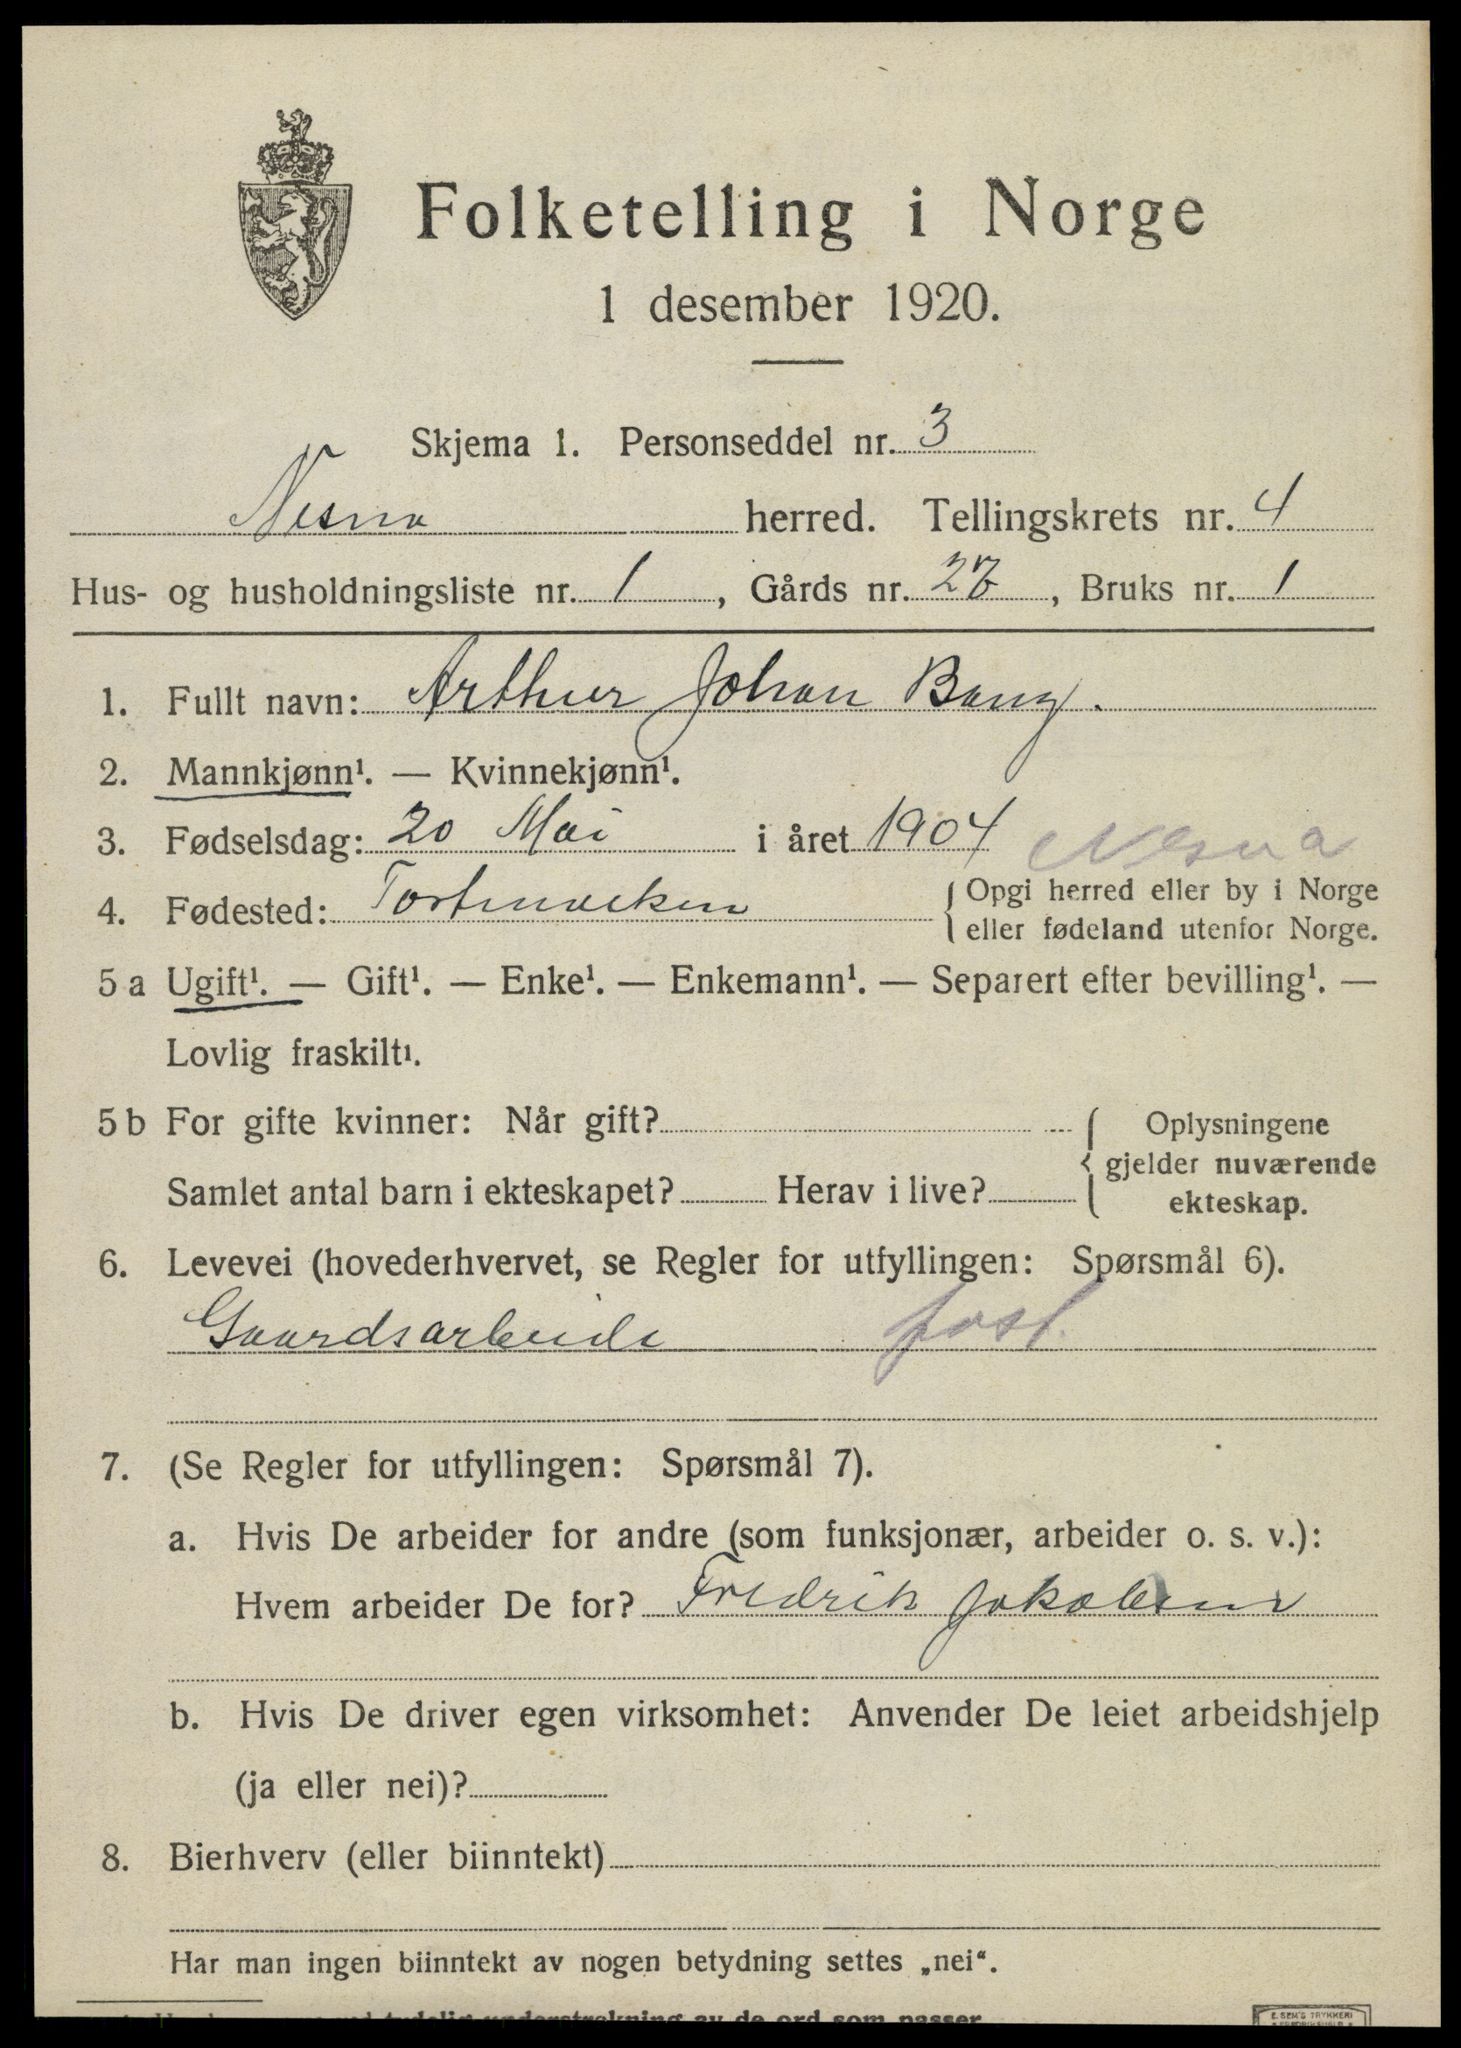 Folketelling i Norge
1 desember 1920.
Skjema 1. Personseddel nr. 3
Nesna herred. Tellingskrets nr. 4
Hus- og husholdningsliste nr. 1, Gårds nr. 27, Bruks nr. 1
1. Fullt navn: Arthur Johan Bang.
2. Mannkjønn¹. — Kvinnekjønn¹.
3. Fødselsdag: 20 Mai i året 1904 Nesna
4. Fødested: { Opgi herred eller by i Norge
eller fødeland utenfor Norge.
5 a Ugift¹. — Gift¹. — Enke¹. — Enkemann¹. — Separert efter bevilling¹. —
Lovlig fraskilt¹.
5 b For gifte kvinner: Når gift? { Oplysningene
gjelder nuværende
Samlet antal barn i ekteskapet? Herav i live? ekteskap.
6. Levevei (hovederhvervet, se Regler for utfyllingen: Spørsmål 6).
Gaardsarbeide
7. (Se Regler for utfyllingen: Spørsmål 7).
a. Hvis De arbeider for andre (som funksjonær, arbeider o. s. v.):
Hvem arbeider De for? Fredrik Jakobsen
b. Hvis De driver egen virksomhet: Anvender De leiet arbeidshjelp
(ja eller nei)?
8. Bierhverv (eller biinntekt)
Har man ingen biinntekt av nogen betydning settes „nei“.
tydelig understrekning av de ord som passer
E. SEM'S TRYKKERI